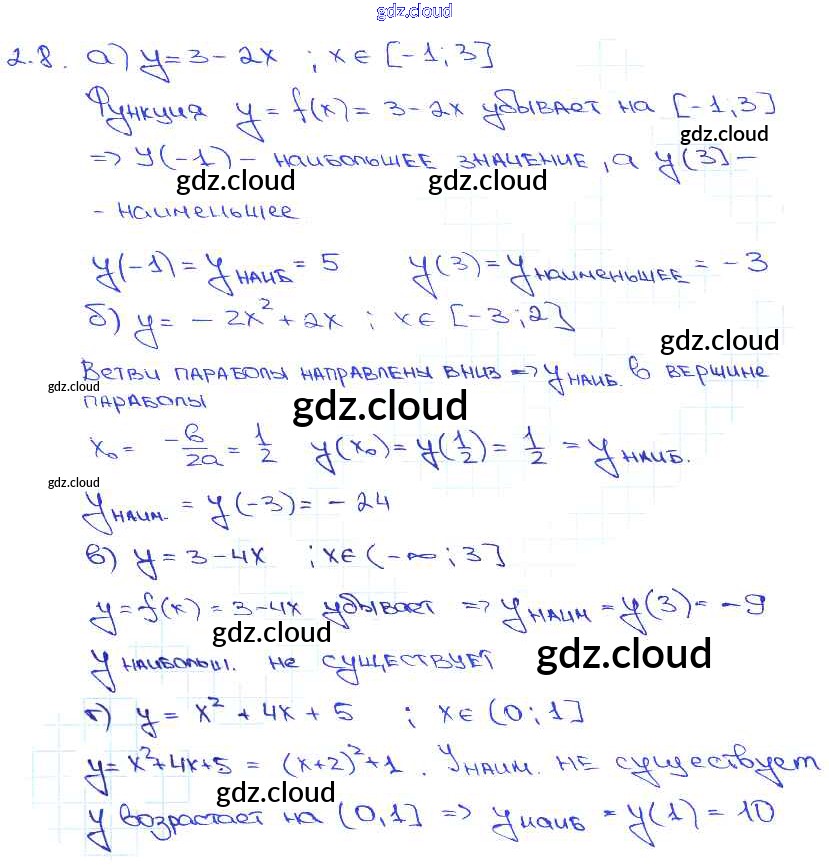 gdz.cloud
2.8. а) y = 3 - 2x ; x ∈ [-1; 3]
Функция y = f(x) = 3 - 2x убывает на [-1, 3]
gdz.cloud
=> y(-1) - наибольшее значение, а y(3] -
gdz.cloud gdz.cloud
- наименьшее
y(-1) = y наиб = 5 y(3) = y наименьшее = -3
б) y = -2x² + 2x ; x ∈ [-3; 2]
gdz.cloud
Ветви параболы направлены вниз => y наиб. в вершине
gdz.cloud
параболы
gdz.cloud
x₀ = -в/2a = 1/2 y(x₀) = y(1/2) = 1/2 = y наиб.
gdz.cloud
y наим. = y(-3) = -24
в) y = 3 - 4x ; x ∈ (-∞; 3]
y = f(x) = 3 - 4x убывает => y наим = y(3) = -9
gdz.cloud
y наибольш. не существует
gdz.cloud
г) y = x² + 4x + 5 ; x ∈ (0; 1]
y = x² + 4x + 5 = (x+2)² + 1. y наим. не существует
gdz.cloud
y возрастает на (0, 1] => y наиб = y(1) = 10